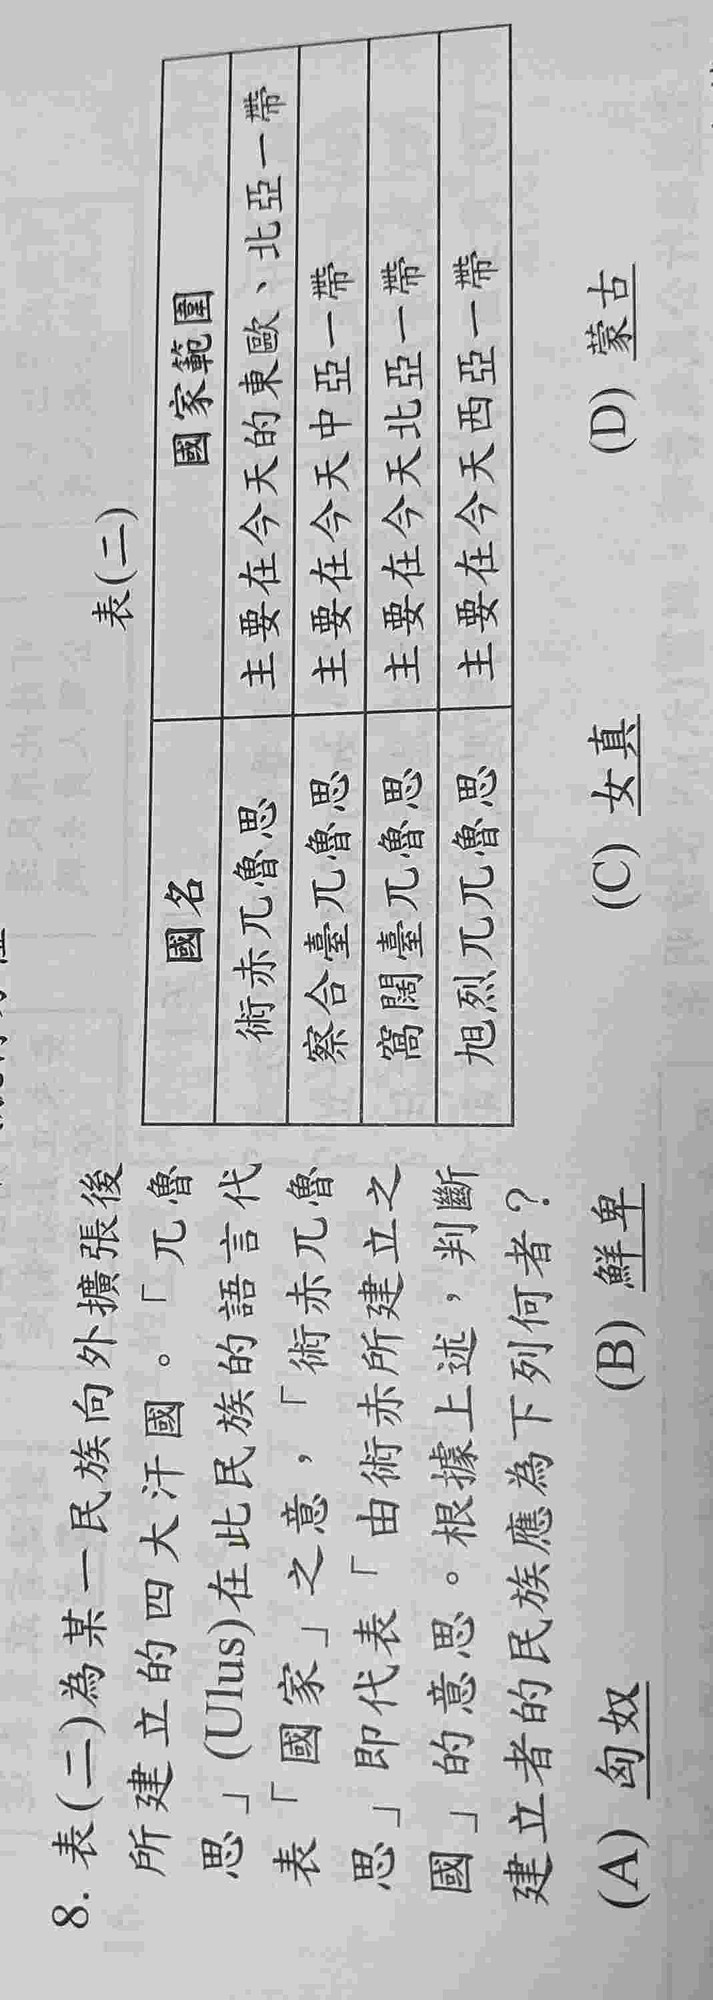 8. 表(二)為某一民族向外擴張後
所建立的四大汗國。「兀魯
思」(Ulus)在此民族的語言代
表「國家」之意，「術赤兀魯
思」即代表「由術赤所建立之
國」的意思。根據上述，判斷
建立者的民族應為下列何者？
表(二)
國名 國家範圍
術赤兀魯思 主要在今天的東歐、北亞一帶
察合臺兀魯思 主要在今天中亞一帶
窩闊臺兀魯思 主要在今天北亞一帶
旭烈兀兀魯思 主要在今天西亞一帶
(A) 匈奴 (B) 鮮卑 (C) 女真 (D) 蒙古